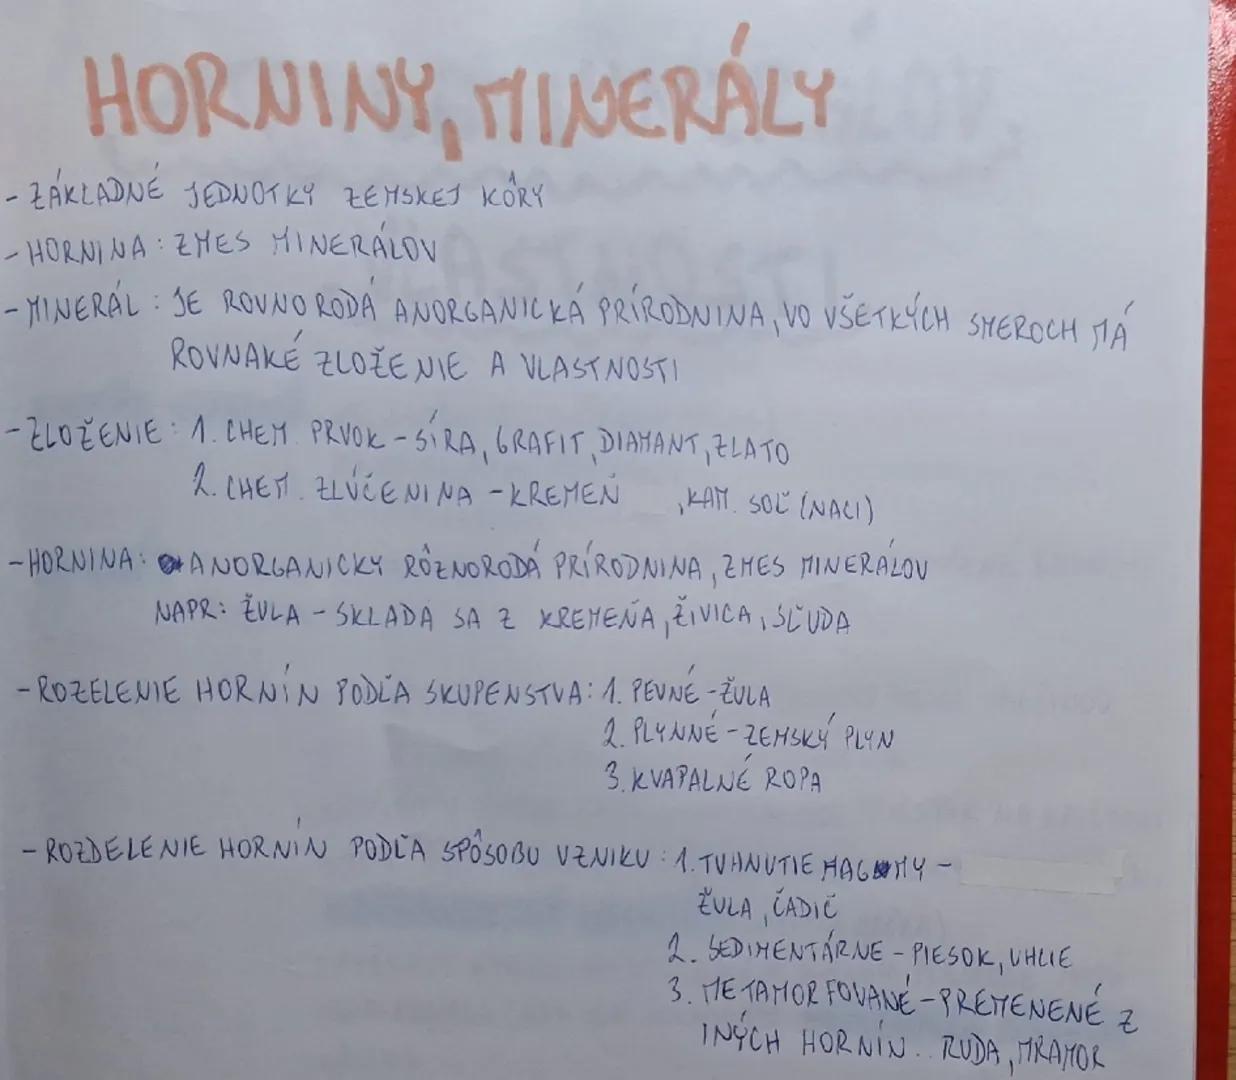 HORNINY, MINERÁLY
- ZÁKLADNÉ JEDNOTKY ZEMSKEJ KÔRY
- HORNINA: ZMES MINERÁLOV
- MINERÁL: JE ROVNORODÁ ANORGANICKÁ PRÍRODNINA, VO VŠETKÝCH SMEROCH MÁ
ROVNAKÉ ZLOŽENIE A VLASTNOSTI
- ZLOŽENIE: 1. CHEM. PRVOK - SÍRA, GRAFIT, DIAMANT, ZLATO
2. CHEM. ZLÚČENINA - KREMEŇ , KAM. SOĽ (NACl)
- HORNINA: ANORGANICKY RÔZNORODÁ PRÍRODNINA, ZMES MINERÁLOV
NAPR: ŽULA - SKLADÁ SA Z KREMEŇA, ŽIVICA, SĽUDA
- ROZELENIE HORNÍN PODĽA SKUPENSTVA: 1. PEVNÉ - ŽULA
2. PLYNNÉ - ZEMSKÝ PLYN
3. KVAPALNÉ ROPA
- ROZDELENIE HORNÍN PODĽA SPÔSOBU VZNIKU: 1. TUHNUTIE MAGMY -
ŽULA, ČADIČ
2. SEDIMENTÁRNE - PIESOK, UHLIE
3. METAMORFOVANÉ - PREMENENÉ Z
INÝCH HORNÍN.. RUDA, MRAMOR